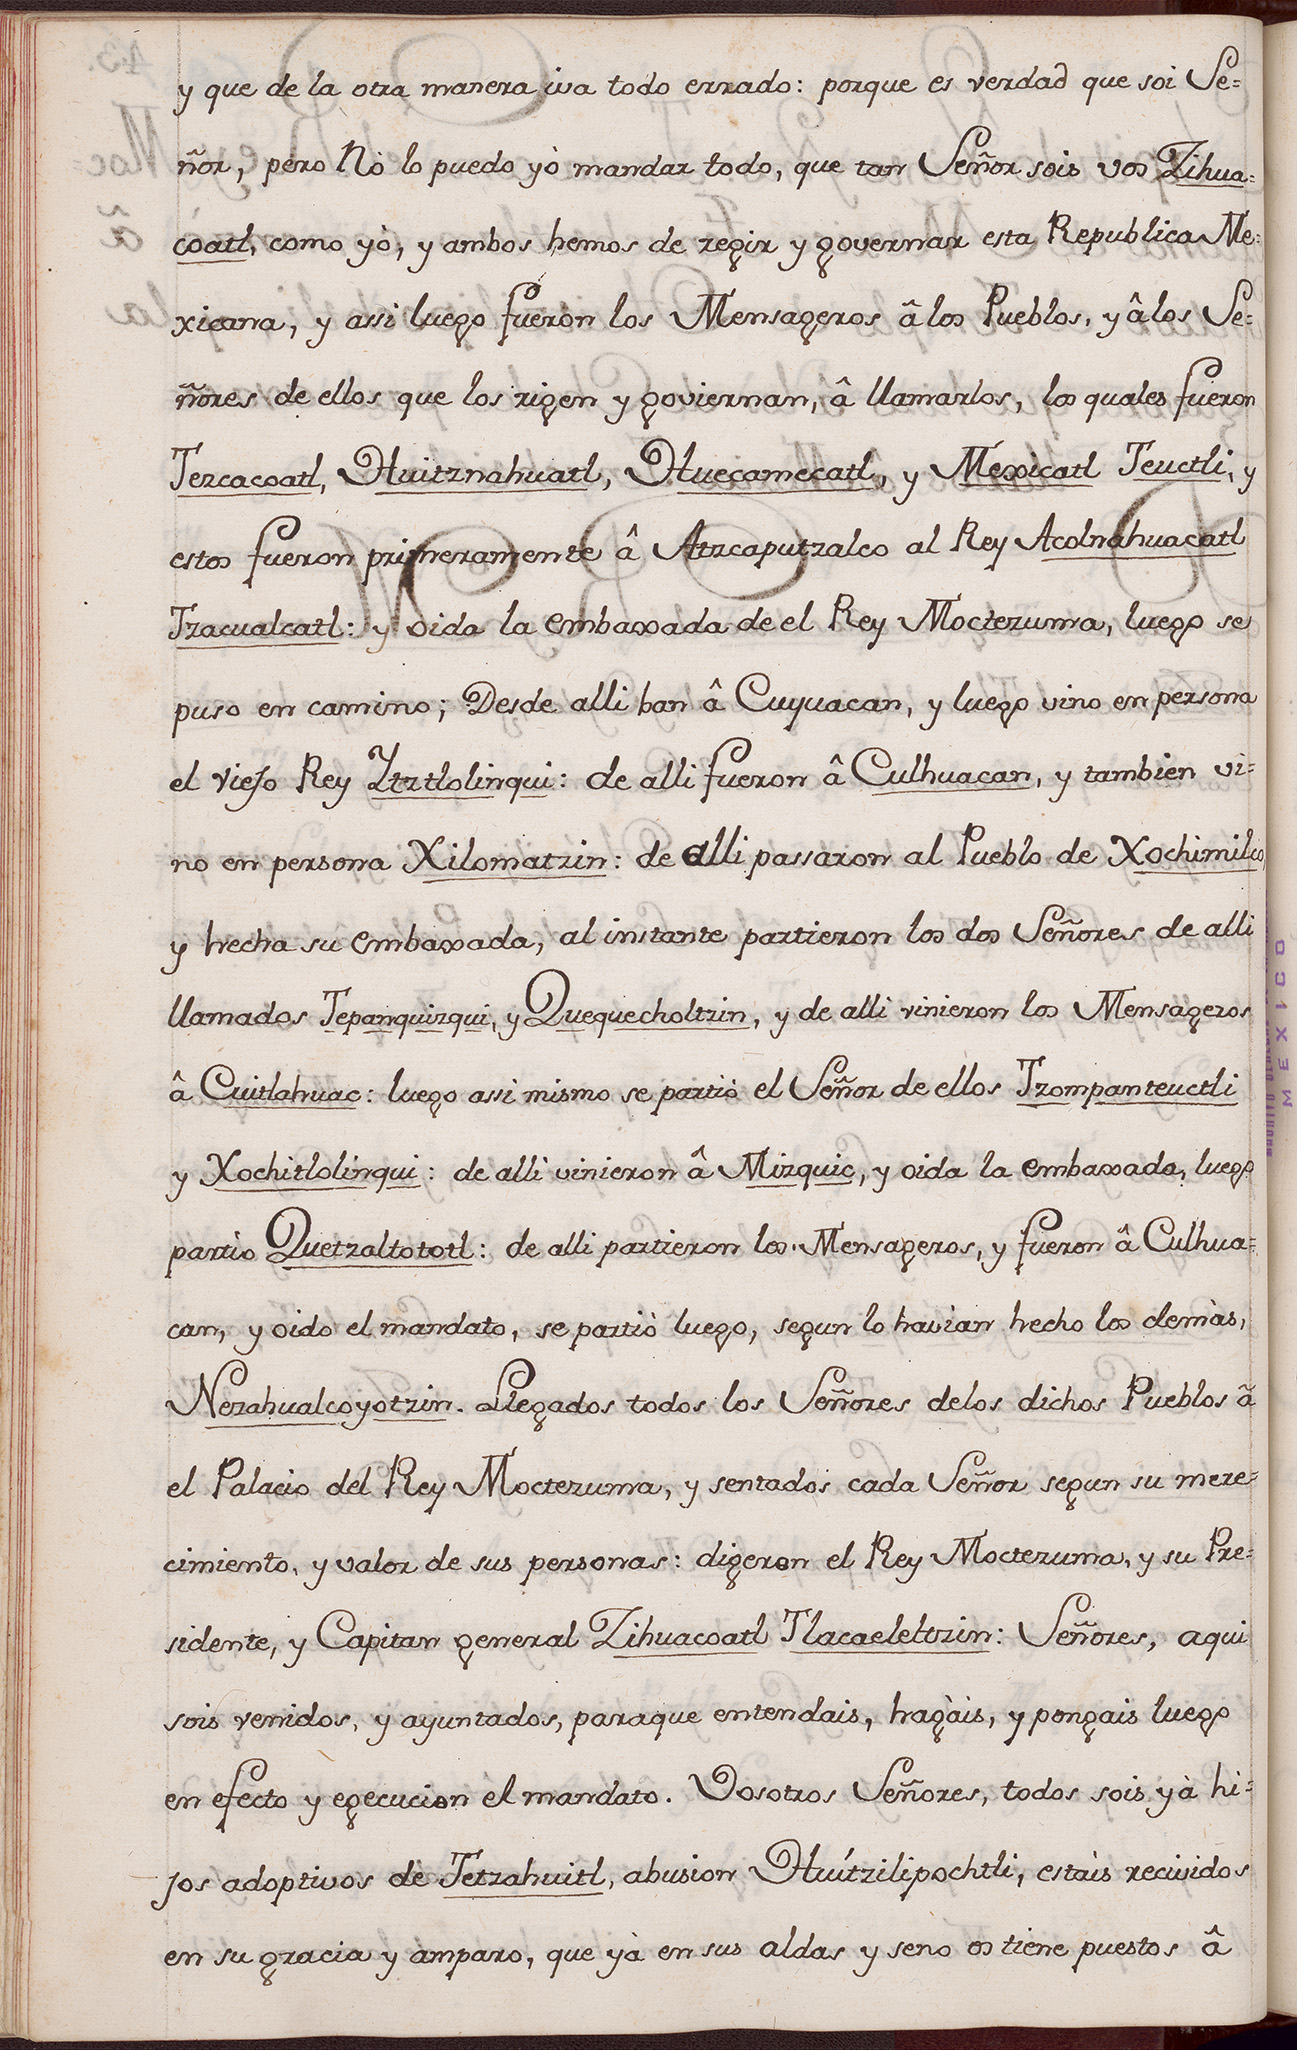 y que de la otra manera iva todo errado: porque es verdad que soi Se=
ñor, pero Nò lo puedo yò mandar todo, que tan Señor sois vos Zihua=
coatl, como yò, y ambos hemos de regir y governar esta Republica Me=
xicana, y assi luego fueron los Mensageros â los Pueblos, y â los Se=
ñores de ellos que los rigen y goviernan, â llamarlos, los quales fueron
Tezcacoatl, Huitznahuatl, Huecamecatl, y Mexicatl Teuctli, y
estos fueron primeramente â Atzcaputzalco al Rey Acolnahuacatl
Tzacualcatl: y oida la embaxada de el Rey Moctezuma, luego se
puso en camino; Desde alli ban â Cuyuacan, y luego vino en persona
el viejo Rey Ytztlolinqui: de alli fueron â Culhuacan, y tambien vi=
no en persona Xilomatzin: de alli passaron al Pueblo de Xochimilco,
y hecha su embaxada, al instante partieron los dos Señores de alli
llamados Tepanquizqui, y Quequecholtzin, y de alli vinieron los Mensageros
â Cuitlahuac: luego assi mismo se partiò el Señor de ellos Tzompanteuctli
y Xochitlolinqui: de alli vinieron â Mizquic, y oida la embaxada, luego
partio Quetzaltototl: de alli partieron los Mensageros, y fueron â Culhua=
can, y oido el mandato, se partiò luego, segun lo havian hecho los demàs,
Nezahualcoyotzin. Llegados todos los Señores delos dichos Pueblos â
el Palacio del Rey Moctezuma, y sentados cada Señor segun su mere=
cimiento, y valor de sus personas: digeron el Rey Moctezuma, y su Pre=
sidente, y Capitan general Zihuacoatl Tlacaeleltzin: Señores, aqui
sois venidos, y ayuntados, paraque entendais, hagàis, y pongais luego
en efecto y egecucion el mandato. Vosotros Señores, todos sois yà hi=
jos adoptivos de Tetzahuitl, abusion Huítzilipochtli, estàis recividos
en su gracia y amparo, que yà en sus aldas y seno os tiene puestos â
MEXICO